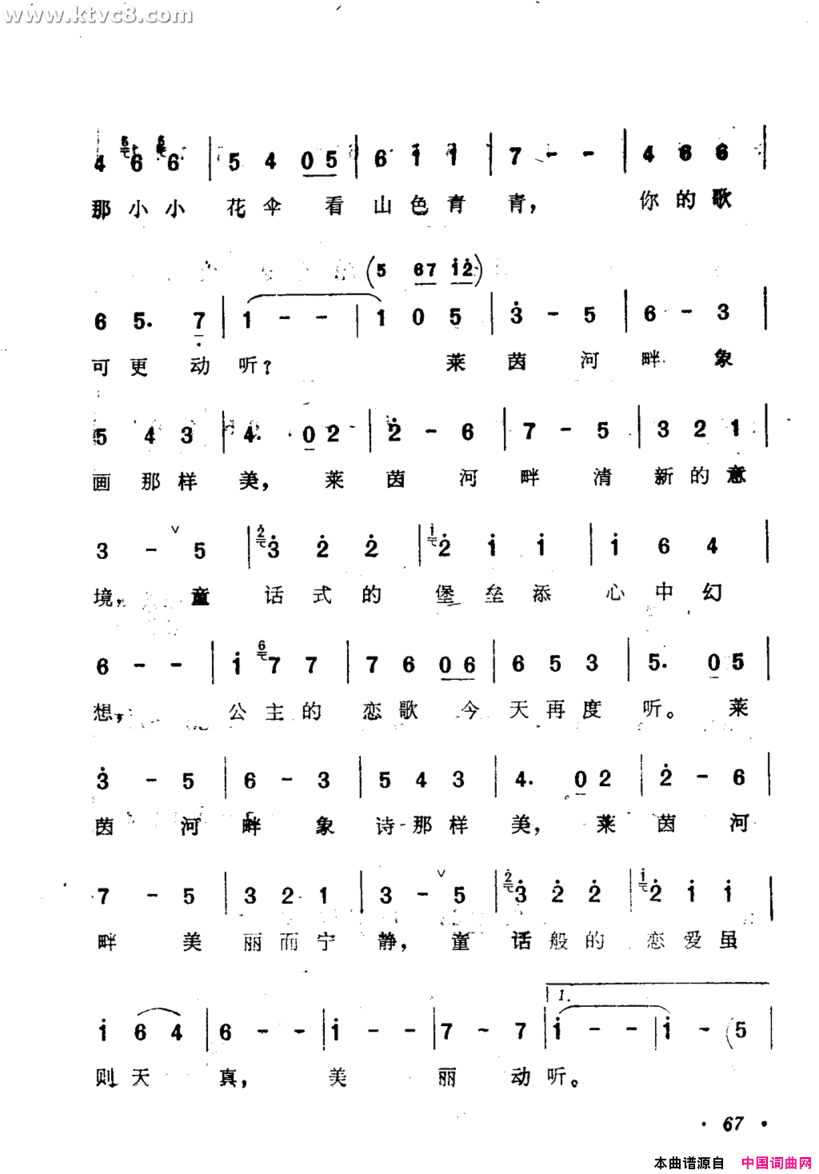 www.ktvc8.com
4 6 6 | 5 4 0 5 | 6 1̇ 1̇ | 7 - - | 4 6 6 |
那小小 花伞 看 山色青 青， 你的歌
(5 6 7 1̇ 2̇)
6 5. 7̣ | 1 - - | 1 0 5 | 3̇ - 5 | 6 - 3 |
可更 动 听？ 莱 茵 河 畔 象
5 4 3 | 4. 0 2 | 2̇ - 6 | 7 - 5 | 3 2 1 |
画那样 美， 莱 茵 河 畔 清 新的意
3 - ∨ 5 | 3̇ 2̇ 2̇ | 2̇ 1̇ 1̇ | 1̇ 6 4 |
境， 童 话式的 堡垒添 心中幻
6 - - | 1̇ 7 7 | 7 6 0 6 | 6 5 3 | 5. 0 5 |
想， 公主的 恋歌 今 天再度 听。 莱
3̇ - 5 | 6 - 3 | 5 4 3 | 4. 0 2 | 2̇ - 6 |
茵 河 畔 象 诗那样 美， 莱 茵 河
7 - 5 | 3 2 1 | 3 - ∨ 5 | 3̇ 2̇ 2̇ | 2̇ 1̇ 1̇ |
畔 美 丽而宁 静， 童 话般的 恋爱虽
1.
1̇ 6 4 | 6 - - | 1̇ - - | 7 - 7 | 1̇ - - | 1̇ - (5
则天 真， 美 丽 动 听。
· 67 ·
本曲谱源自 中国词曲网